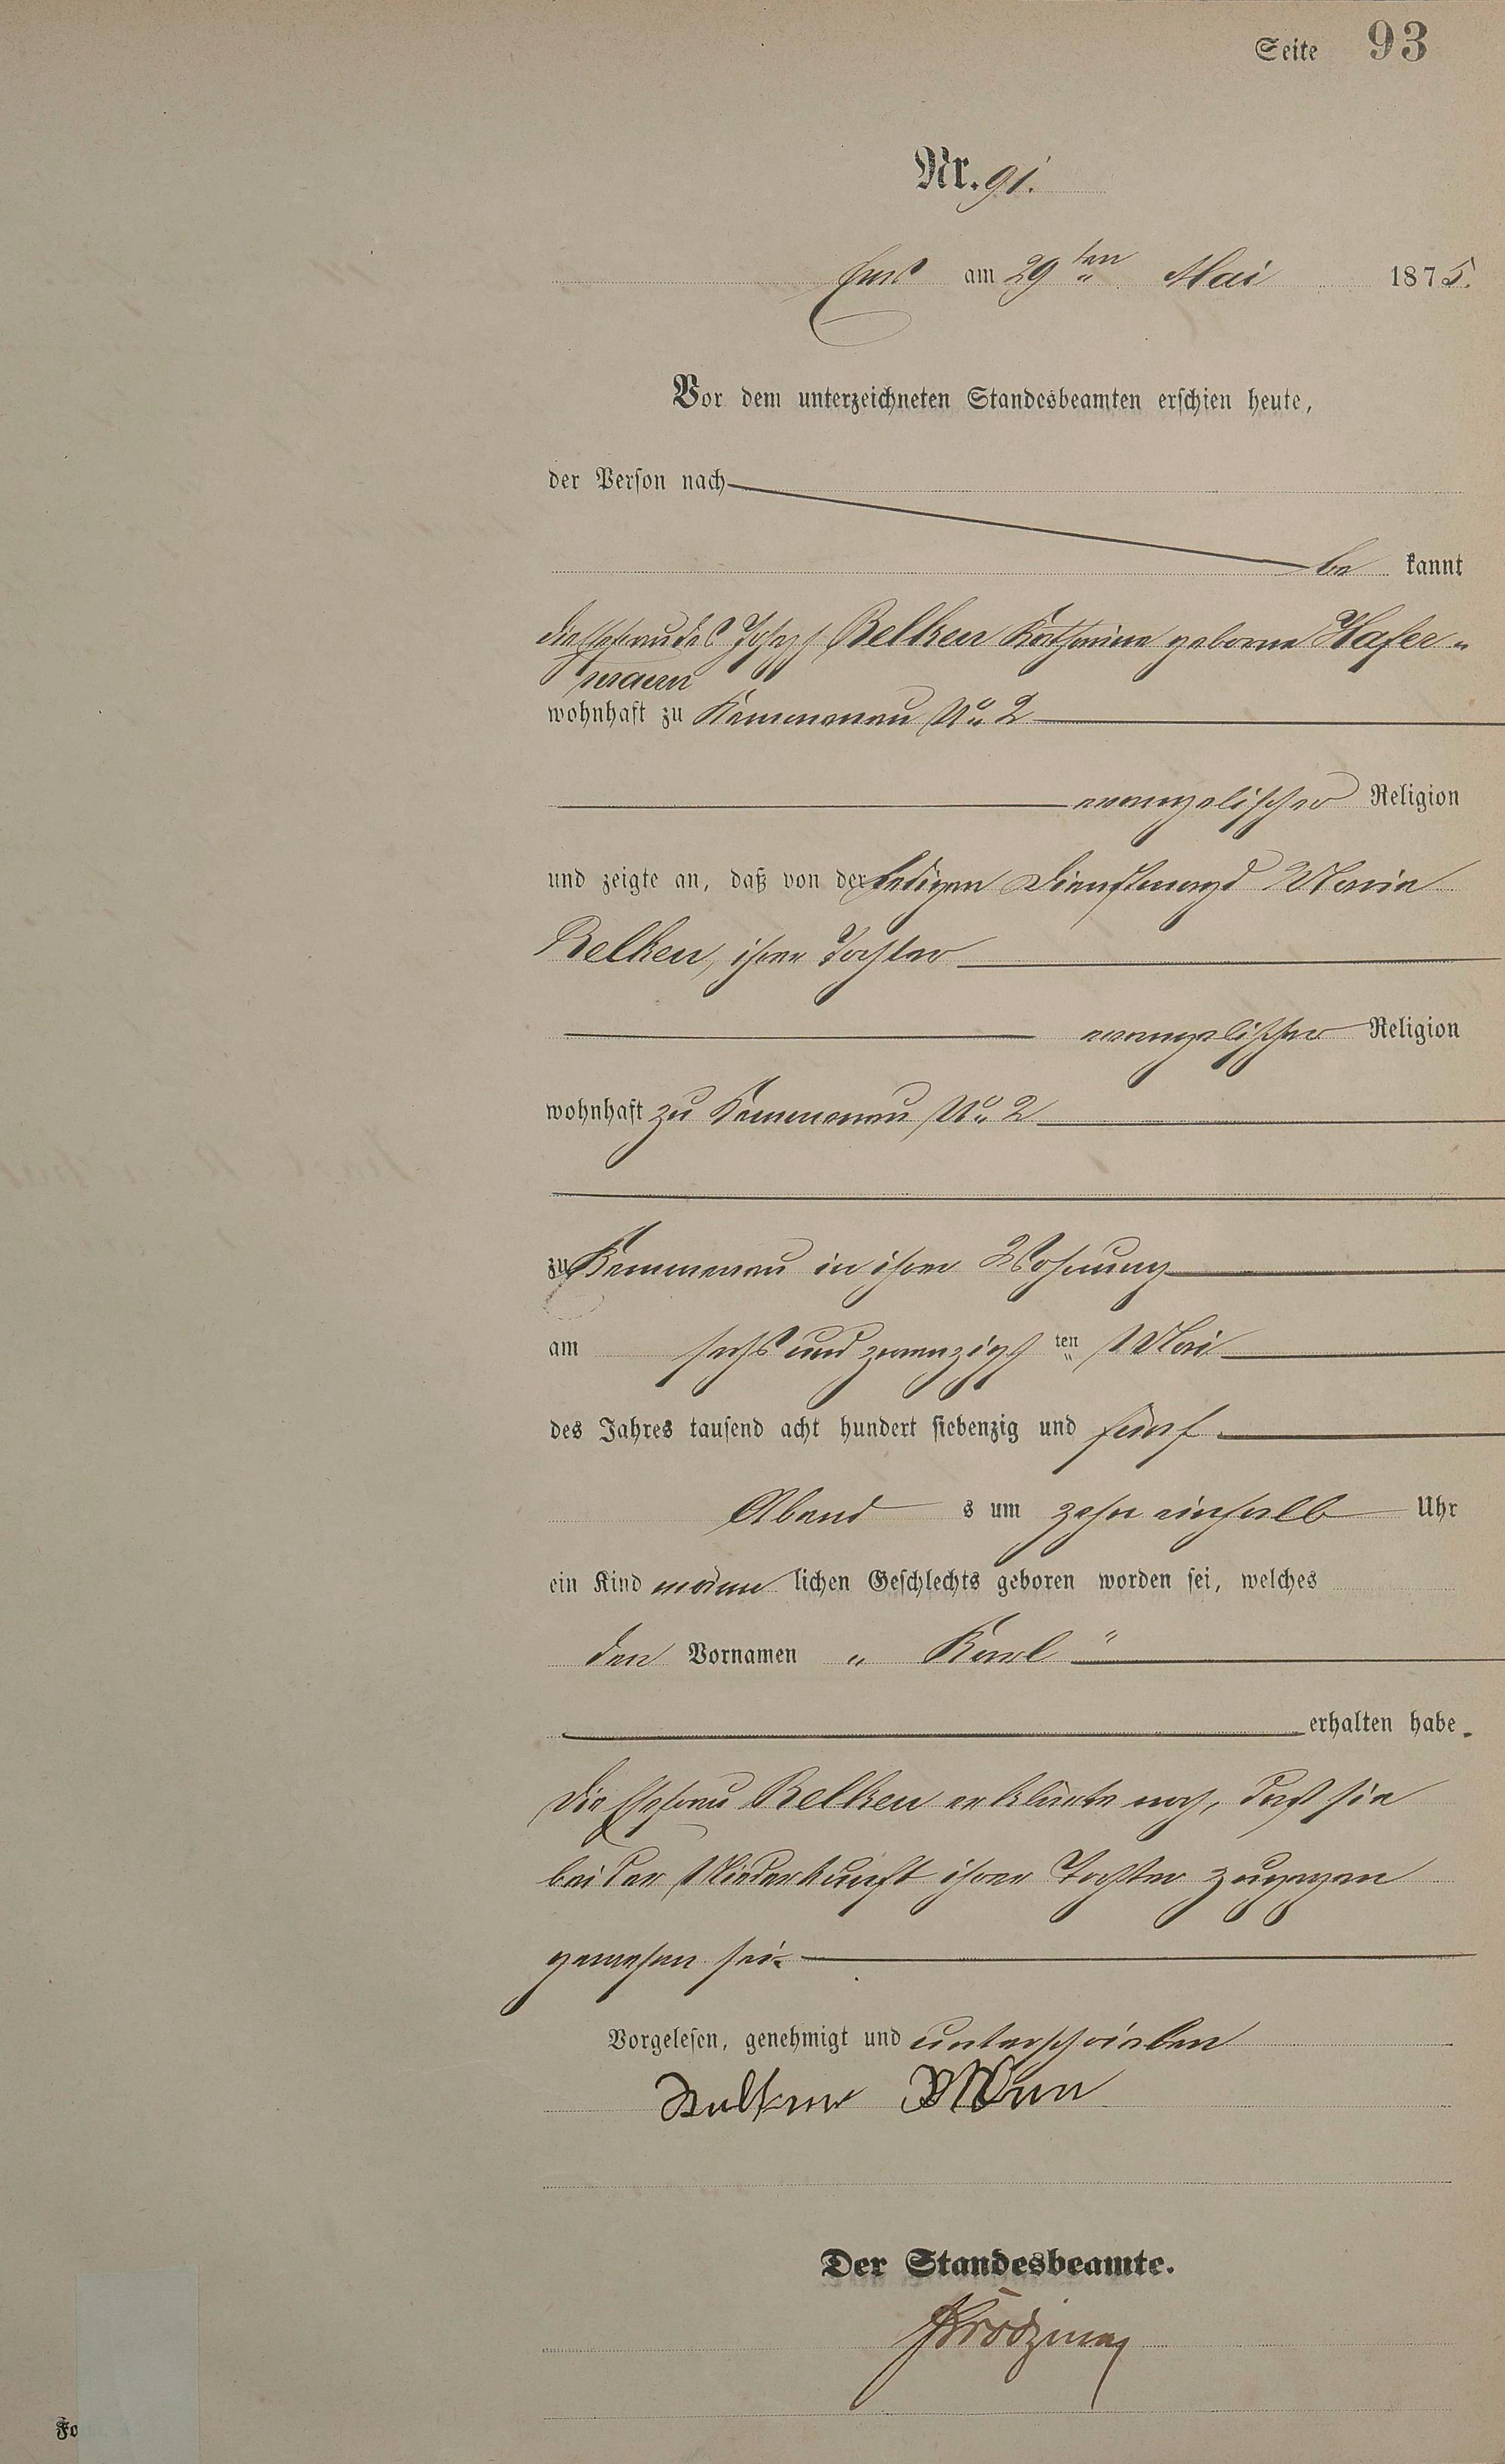 Seite 93
Nr. 91.
Ems am 29ten Mai 1875.
Vor dem unterzeichneten Standesbeamten erschien heute,
der Person nach
be kannt
die Ehefrau des Joseph Belken Katharine geborne Hafer-
mann
wohnhaft zu Kemmenau No 2
evangelischer Religion
und zeigte an, daß von der ledigen Dienstmagd Marie
Belken, ihrer Tochter
evangelischer Religion
wohnhaft zu Kemmenau No 2
zu Kemmenau in ihrer Wohnung
am sechs und zwanzigsten Mai
des Jahres tausend acht hundert siebenzig und fünf
Abend s um zehn einhalb Uhr
ein Kind männ lichen Geschlechts geboren worden sei, welches
den Vornamen „ Karl "
erhalten habe.
Die Ehefrau Belken erklärte noch, daß sie
bei der Niederkunft ihrer Tochter zugegen
gewesen sei.
Vorgelesen, genehmigt und unterschrieben
Der Standesbeamte.
Fo